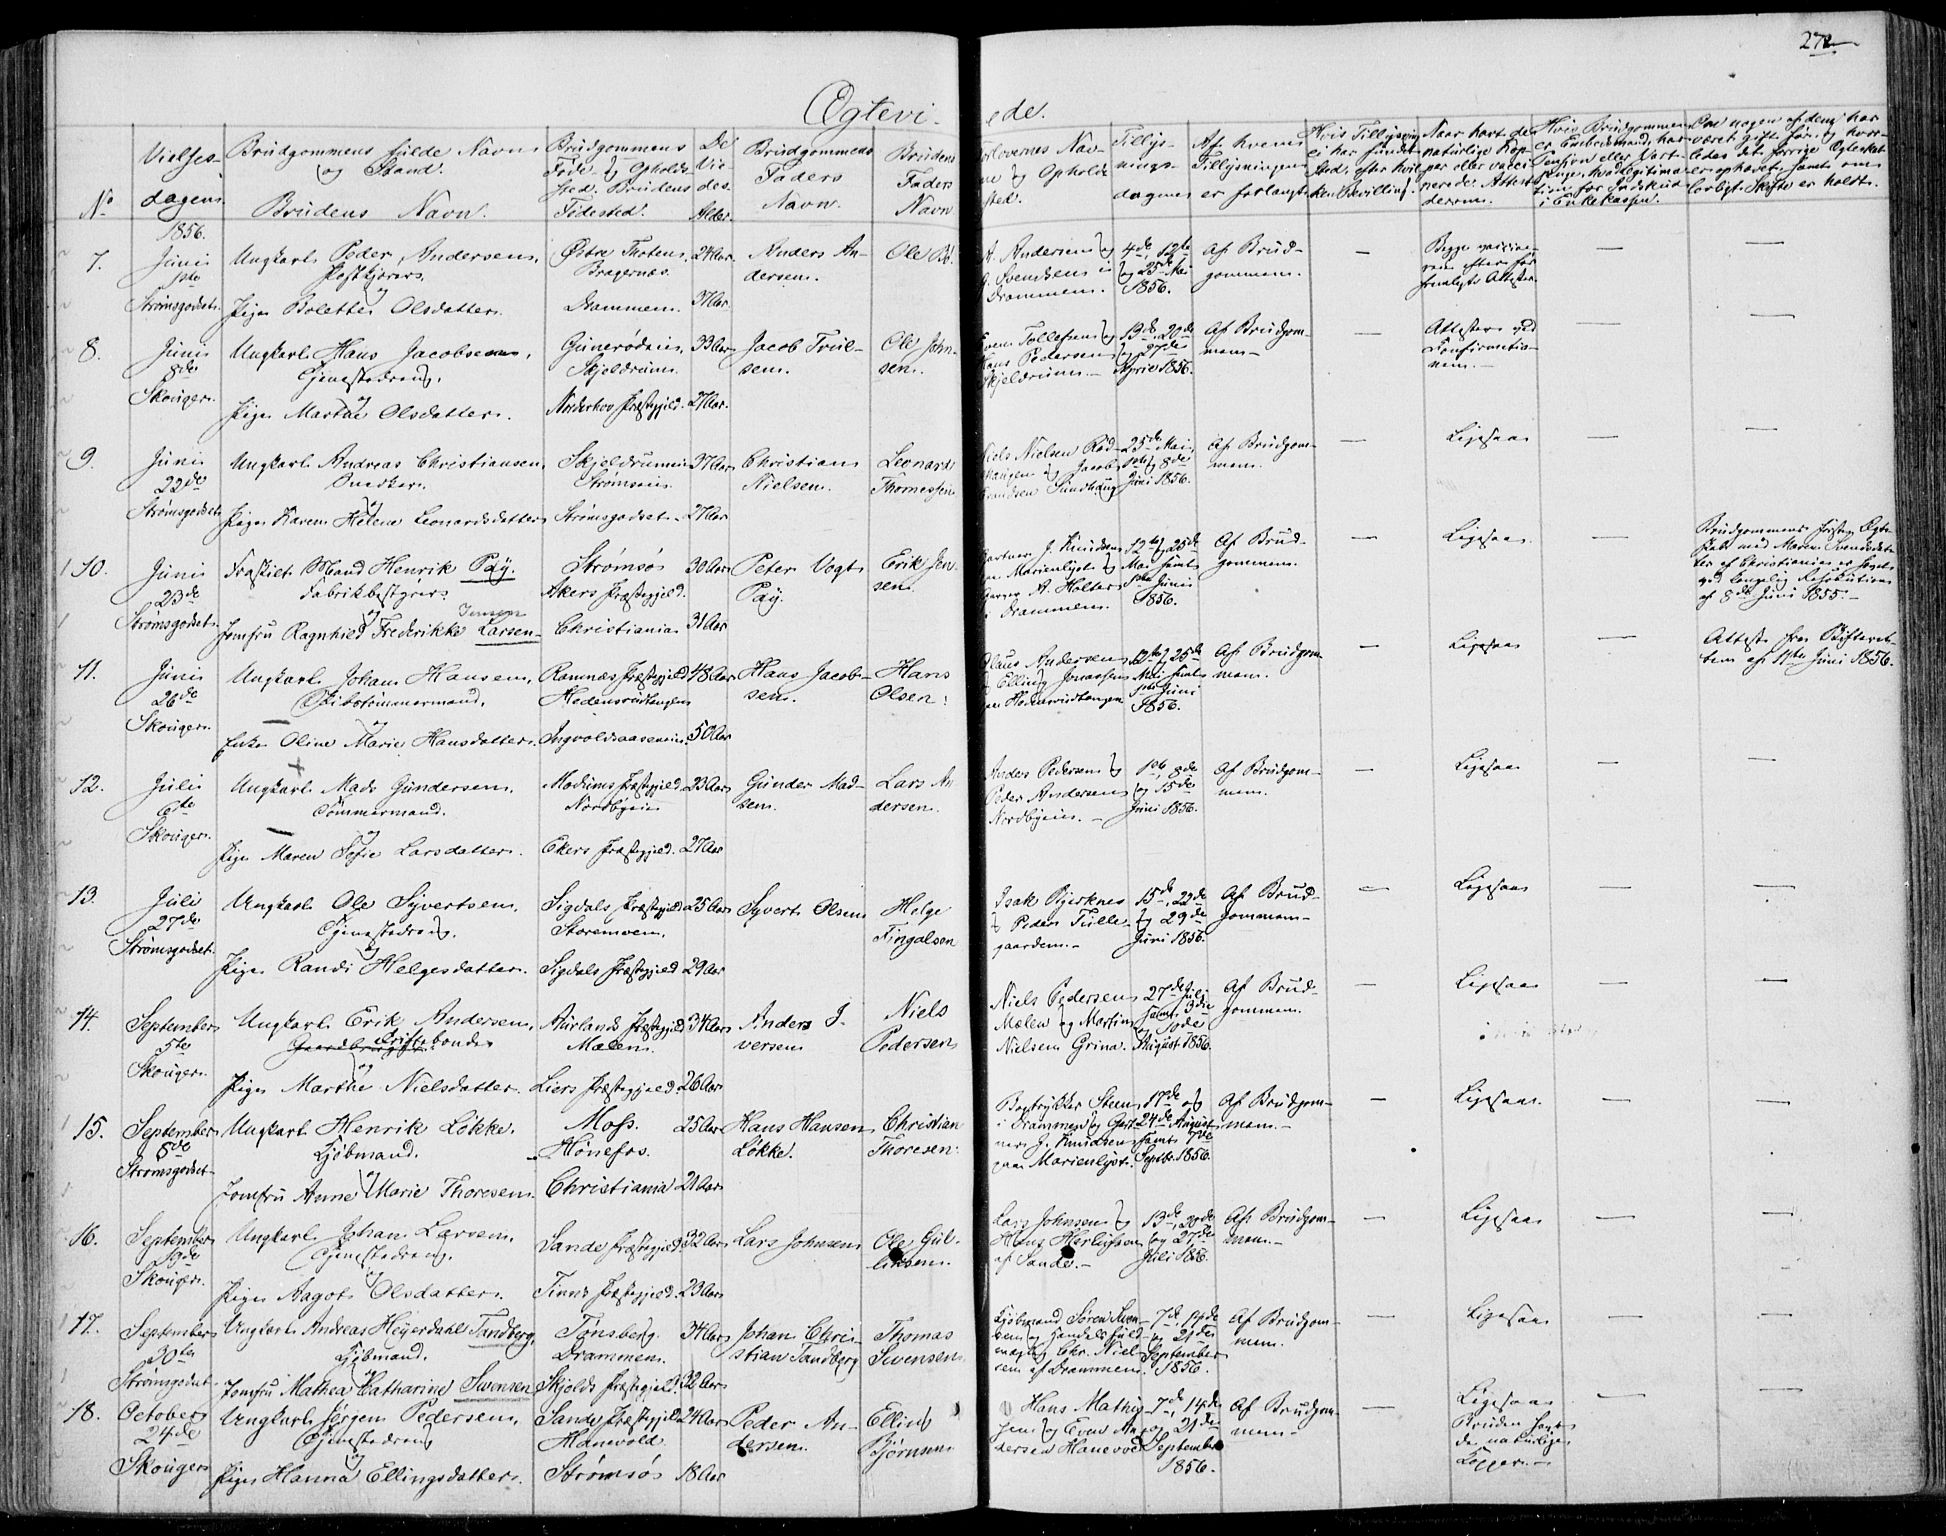 272
Ægteviede.
No
Vielses-
dagen.
Brudgommens fulde Navn
og Stand.
Brudens Navn.
Brudgommens
Føde og Opholds-
sted. Brudens
Fødested.
De
Vie-
des
Alder.
Brudgommens
Faders
Navn.
Brudens
Faders
Navn
Forlovernes Nav-
ne og Opholds-
sted.
Tillys-
nings-
dagene
Af hvem
Tillysningen
er forlangt
1856.
7.
Juni
1ste
Strømsgodset.
Ungkarl Peder Andersen,
Postkjører.
og
Pige Bolette Olsdatter.
Østre Thoten,
Bragernæs.
Drammen.
24 Aar
37 Aar.
Anders An-
dersen.
Ole
A. Andersen og
Svendsen i
Drammen.
4de, 12te
og 25de Mai
1856.
Af Brud-
gommen.
8.
Juni
8de
Skouger.
Ungkarl Hans Jacobsen,
Tjenestedreng.
og
Pige Marthe Olsdatter.
Skjeldrum.
Norderhov Præstegjeld.
33 Aar
27 Aar.
Jacob Truls-
sen.
Ole John-
sen.
Even Tollefsen og
Hans Pedersen
Skjeldrum.
13de, 20de
og 27de
April 1856.
Af Brudgom-
men
Attester ved
Confirmatio-
nen.
9.
Juni
22de
Strømsgodset
Ungkarl Andreas Christiansen,
Snedker.
og
Pige Karen Helene Leonardsdatter
Strømsgodset.
37 Aar
27 Aar
Christian
Nielsen.
Leonard
Thomessen
Niels Nielsen
25de Mai,
1ste og 8de
Juni 1856.
Af Brudgom-
men.
Ligesaa
10.
Juni
23de
Strømsgodset.
Fraskilt Mand Henrik Pay.
Fabrikbestyrer.
og
Jensen
Jomfru Ragnhild Frederikke Larsen
Strømsø
Akers Præstegjeld.
Christiania
30 Aar
31 Aar
Peter Vogt
Pay.
Erik Jen-
sen.
Gartner J. Knudsen
paa Marienlyst og
A. Holter
i Drammen.
12te og 25de
Mai samt
1ste Juni
1856.
Af Brud-
gommen.
Ligesaa
Brudgommens første Ægte-
skab med Maren Svendsdat-
ter af Christiania er hævet
ved Kongelig Resolution
af 8de Juni 1855.
11.
Juni
26de
Skouger.
Ungkarl Johan Hansen,
Skibstømmermand.
og
Enke Oline Marie Hansdatter.
Ramnæs Præstegjeld
48 Aar
50 Aar
Hans Jacob-
sen.
Hans
Olsen.
Claus Andersen
og Elling Jonassen
12te og 25de
Mai samt
1ste Juni
1856.
Af Brudgom-
men.
Ligesaa
Attest fra Skifteret-
ten af 11te Juni 1856.
12.
Juli
6te
Skouger.
Ungkarl Mads Gundersen,
Tømmermand.
og
Pige Maren Sofie Larsdatter.
Modums Præstegjeld
Nordbyeie
Ekers Præstegjeld.
23 Aar
27 Aar
Gunder Mad-
sen.
Lars An-
dersen.
Anders Pedersen og
Peder Andersen
Nordbyeie.
1ste, 8de
og 15de
Juni 1856.
Af Brudgom-
men.
Ligesaa
13.
Juli
27de
Strømsgodset.
Ungkarl Ole Syvertsen.
Tjenestedreng.
og
Pige Randi Helgesdatter.
Sigdals Præstegjeld
Storemoen.
Sigdals Præstegjeld
25 Aar
29 Aar
Syvert Olsen
Helge
Fingalsen
Isak Bjerknes
og Peder Tulle-
gaarden.
15de, 22de
og 29de
Juni 1856.
Af Brud-
gommen
Ligesaa
14.
September
5te
Skouger.
Ungkarl Erik Andersen,
og
Pige Marthe Nielsdatter.
Aurlands Præstegjeld
Mælen.
Liers Præstegjeld.
34 Aar
26 Aar
Anders I-
versen
Niels
Pedersen
Niels Pedersen
Mælen og Martin
Nielsen Grina.
27de Juli
samt 3die
og 10de
August 1856.
Af Brud-
gommen.
Ligesaa
15.
September
8de
Strømsgodset
Ungkarl Henrik Løkke.
Kjøbmand.
og
Jomfru Anne Marie Thoresen.
Moss.
Hønefos.
Christiania
25 Aar
21 Aar
Hans Hansen
Løkke.
Christian
Thoresen.
Bogtrykker Steen
i Drammen og Gart-
ner J. Knudsen
paa Marienlyst.
17de og
24de August
samt 7de
Septbr. 1856.
Af Brudgom-
men.
Ligesaa.
16.
September
19de
Skouger.
Ungkarl Johan Larsen.
Tjenestedreng.
og
Pige Aagot Olsdatter.
Sande Præstegjeld.
Tinns Præstegjeld.
32 Aar
23 Aar
Lars Johnsen
Ole Gul-
liksen.
Lars Johnsen og
Hans Herlofsen
af Sande.
13de, 20de
og 27de
Juli 1856.
Af Brudgom-
men.
Ligesaa
17.
September
30te
Strømsgodset
Ungkarl Andreas Heyerdahl Tandberg,
Kjøbmand.
og
Jomfru Mathea Catharine Svensen
Tønsberg.
Drammen.
Skjolds Præstegjeld.
31 Aar
22 Aar
Johan Chri-
stian Tandberg
Thomas
Svensen
Kjøbmand Søren
og Handelsfuld-
mægtig Chr. Niel-
sen af Drammen.
7de, 14de
og 21de
September
1856.
Af Brudgom-
men.
Ligesaa
18.
October
24de
Skouger
Ungkarl Jørgen Pedersen,
Tjenestedreng
og
Pige Hanna Ellingsdatter.
Sande Præstegjeld
Hanevold.
Strømsø
24 Aar
18 Aar
Peder An-
dersen.
Elling
Bjørnsen
Hans Mathi-
sen og Even An-
dersen Hanevold
7de, 14de
og 21de
September
1856.
Af Brudgom-
men.
Ligesaa
Bruden havt
de naturlige
Kopper.